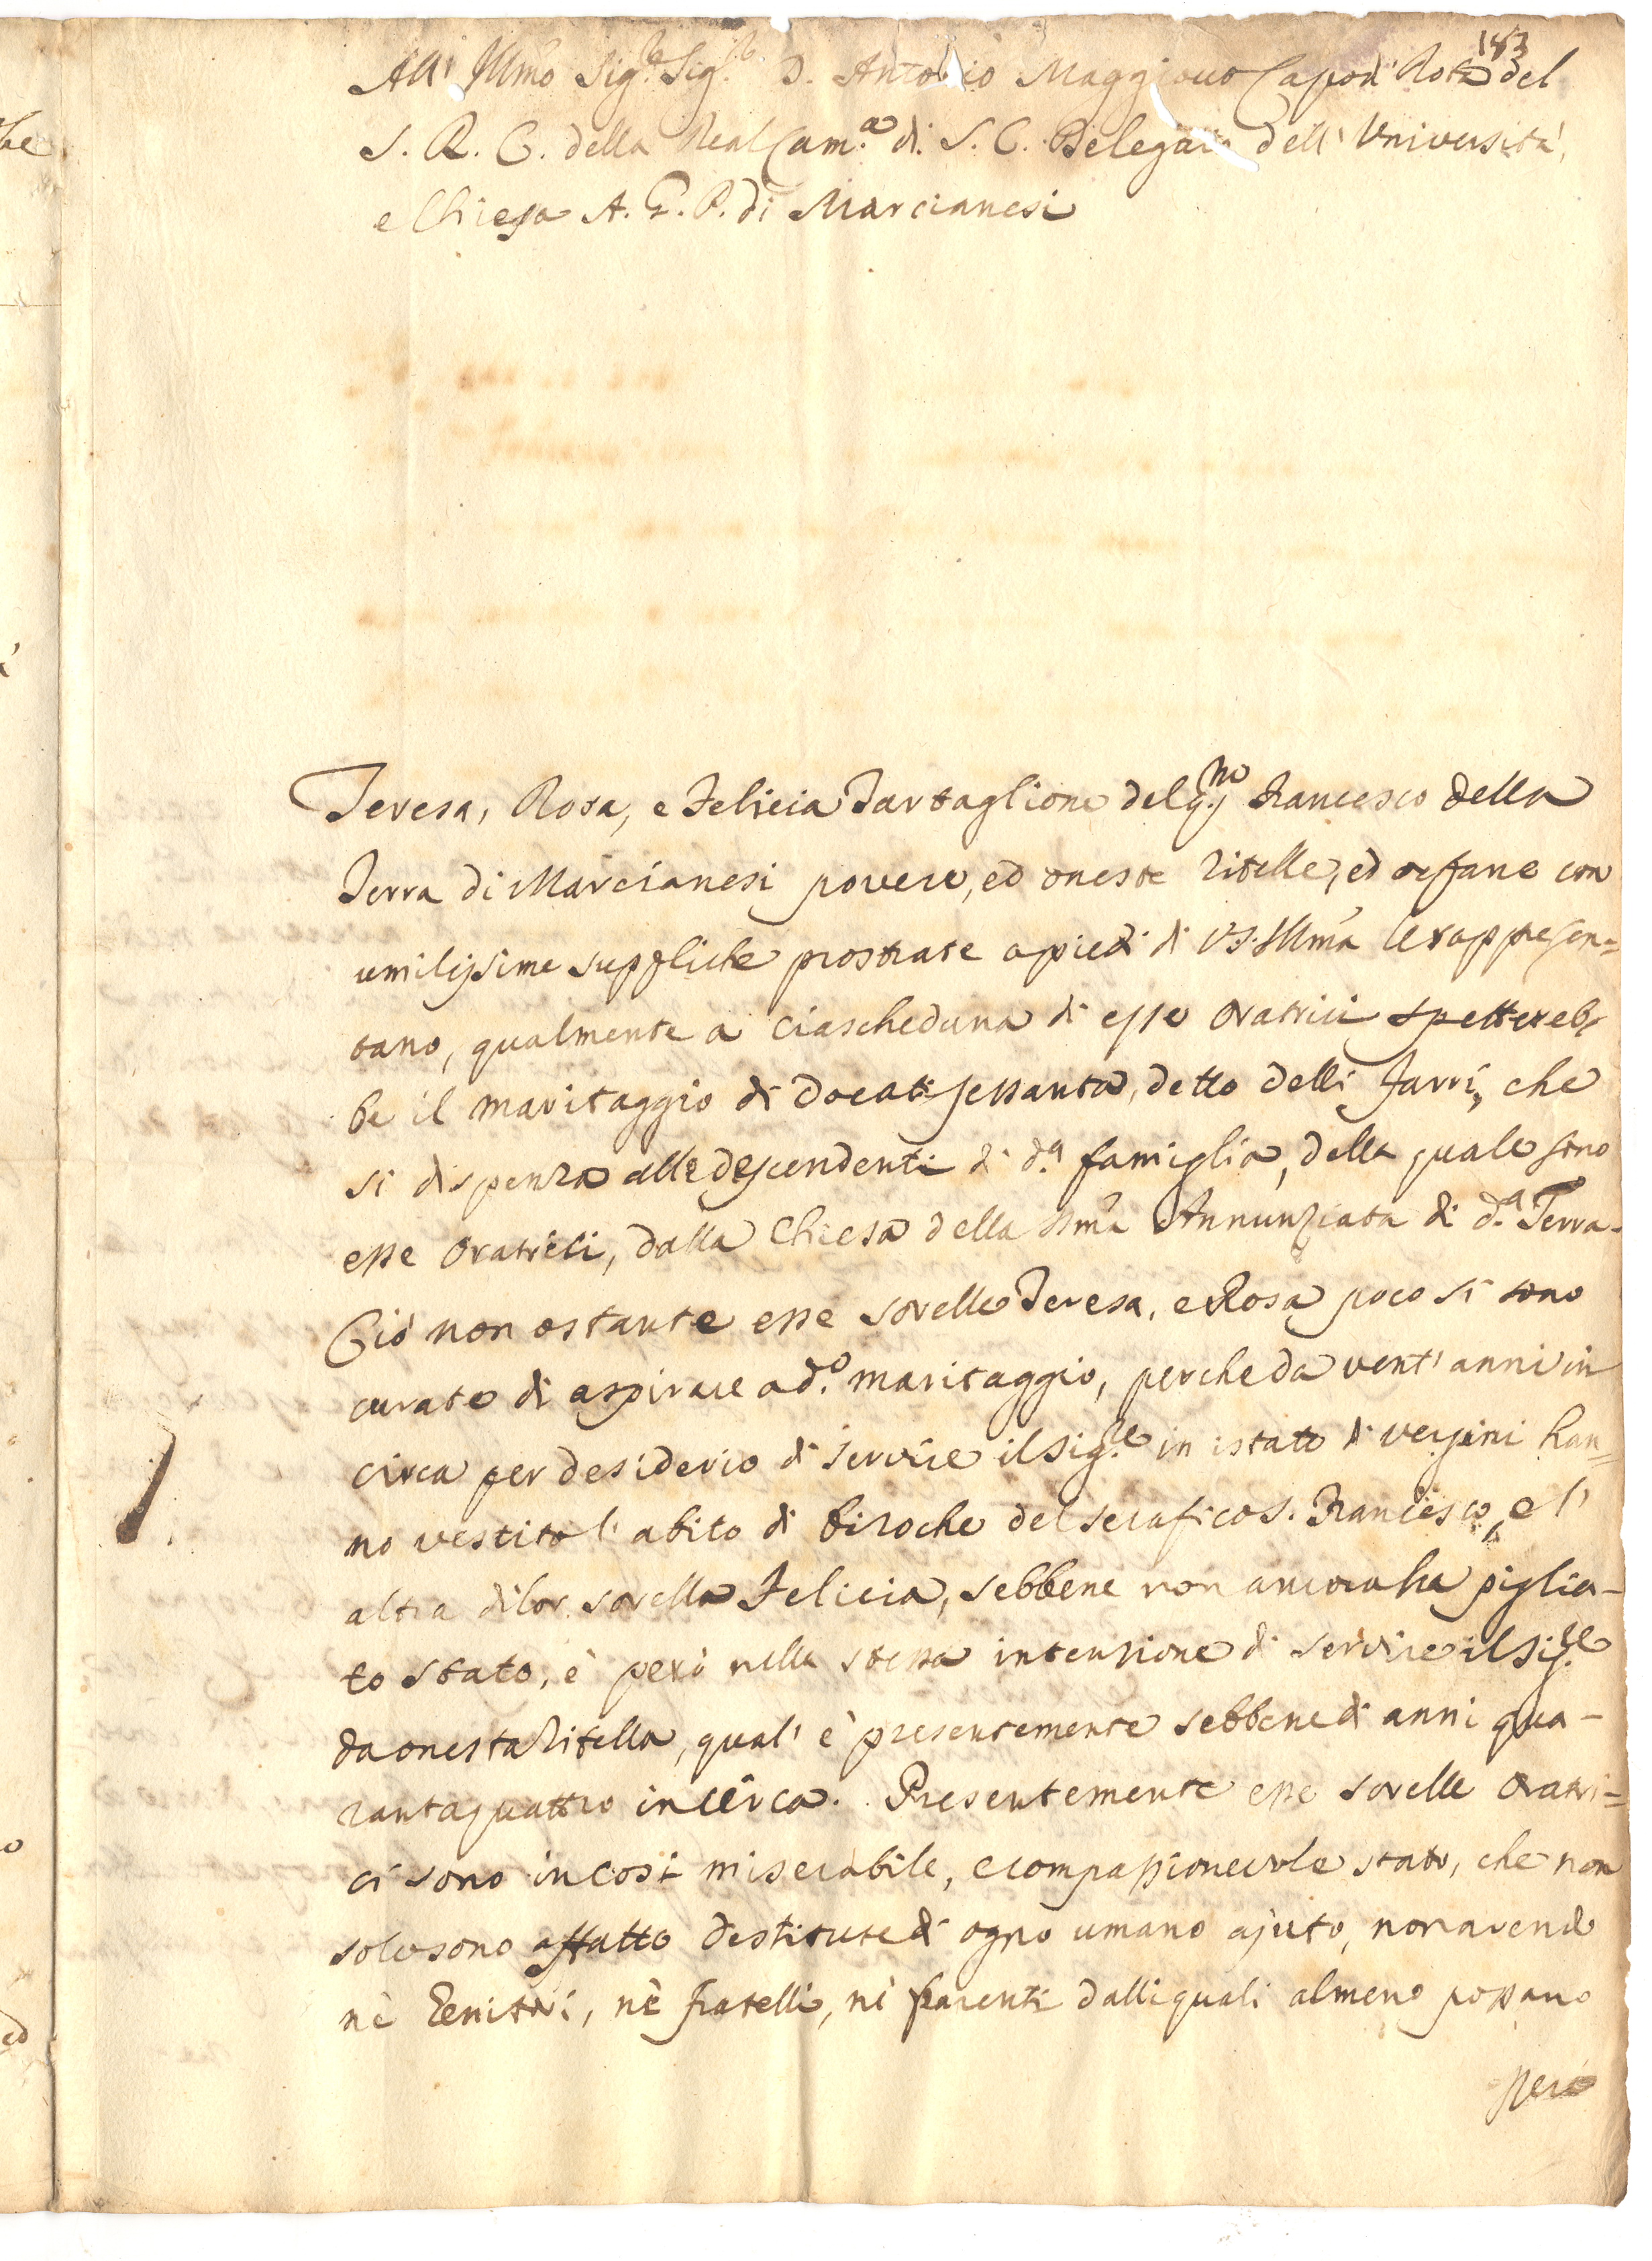 143
All' Illmo Sig.re Sig.re D. Antonio Maggiocco Capo di Rota del
S. R. C. della Real Cam.a di S. C. Delegato dell' Università,
e Chiesa A. G. P. di Marcianesi
Teresa, Rosa, e Felicia Tartaglione del q.m Francesco della
Terra di Marcianesi povere, ed oneste zitelle, ed orfane con
umilissime suppliche prostrate a piedi di VS. Illma le rappresen=
tano, qualmente a ciascheduna di esse oratrici spettereb,
be il maritaggio di docati sessanta, detto delli Farri, che
si dispenza alle descendenti di d.a famiglia, della quale sono
esse oratrici, dalla Chiesa della SSma Annunziata di d.a Terra.
Ciò non ostante esse sorelle Teresa, e Rosa poco si sono
curate di aspirare a d.o maritaggio, perche da vent' anni in
circa per desiderio di servire il Sig.re in istato di vergini han=
no vestito l' abito di bizoche del serafico S. Francesco, e l'
altra di lor sorella Felicia, sebbene non ancora ha piglia-
to stato, è però nella stessa intenzione di servire il Sig.re
da onesta zitella, qual' è presentemente sebbene di anni qua-
rantaquattro incirca. Presentemente esse sorelle oratri=
ci sono in così miserabile, e compassionevole stato, che non
solo sono affatto destitute di ogno umano ajuto, non avendo
nè Genitri, nè fratelli, nè parenti dalli quali almeno possano
però